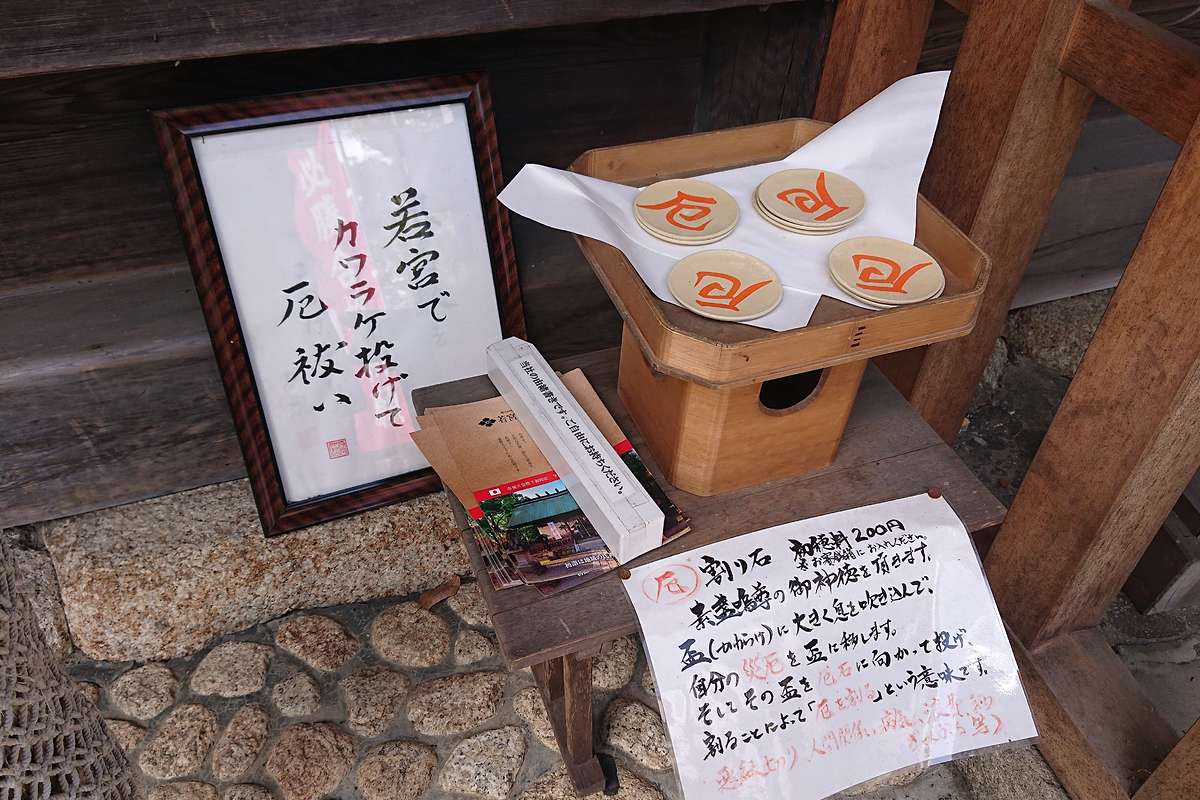 若宮で
カワラケ投げて
厄祓い
必勝
厄
厄
厄
厄
当社の由緒書きです。ご自由にお持ちください。
厄 割り石 初穂料200円
※お賽銭箱にお入れください。
素盞嗚尊の御神徳を頂きます。
盃(かわらけ)に大きく息を吹き込んで、
自分の災厄を盃に移します。
そしてその盃を厄石に向かって投げ、
割ることによって「厄を割る」という意味です。
悪縁切り 人間関係